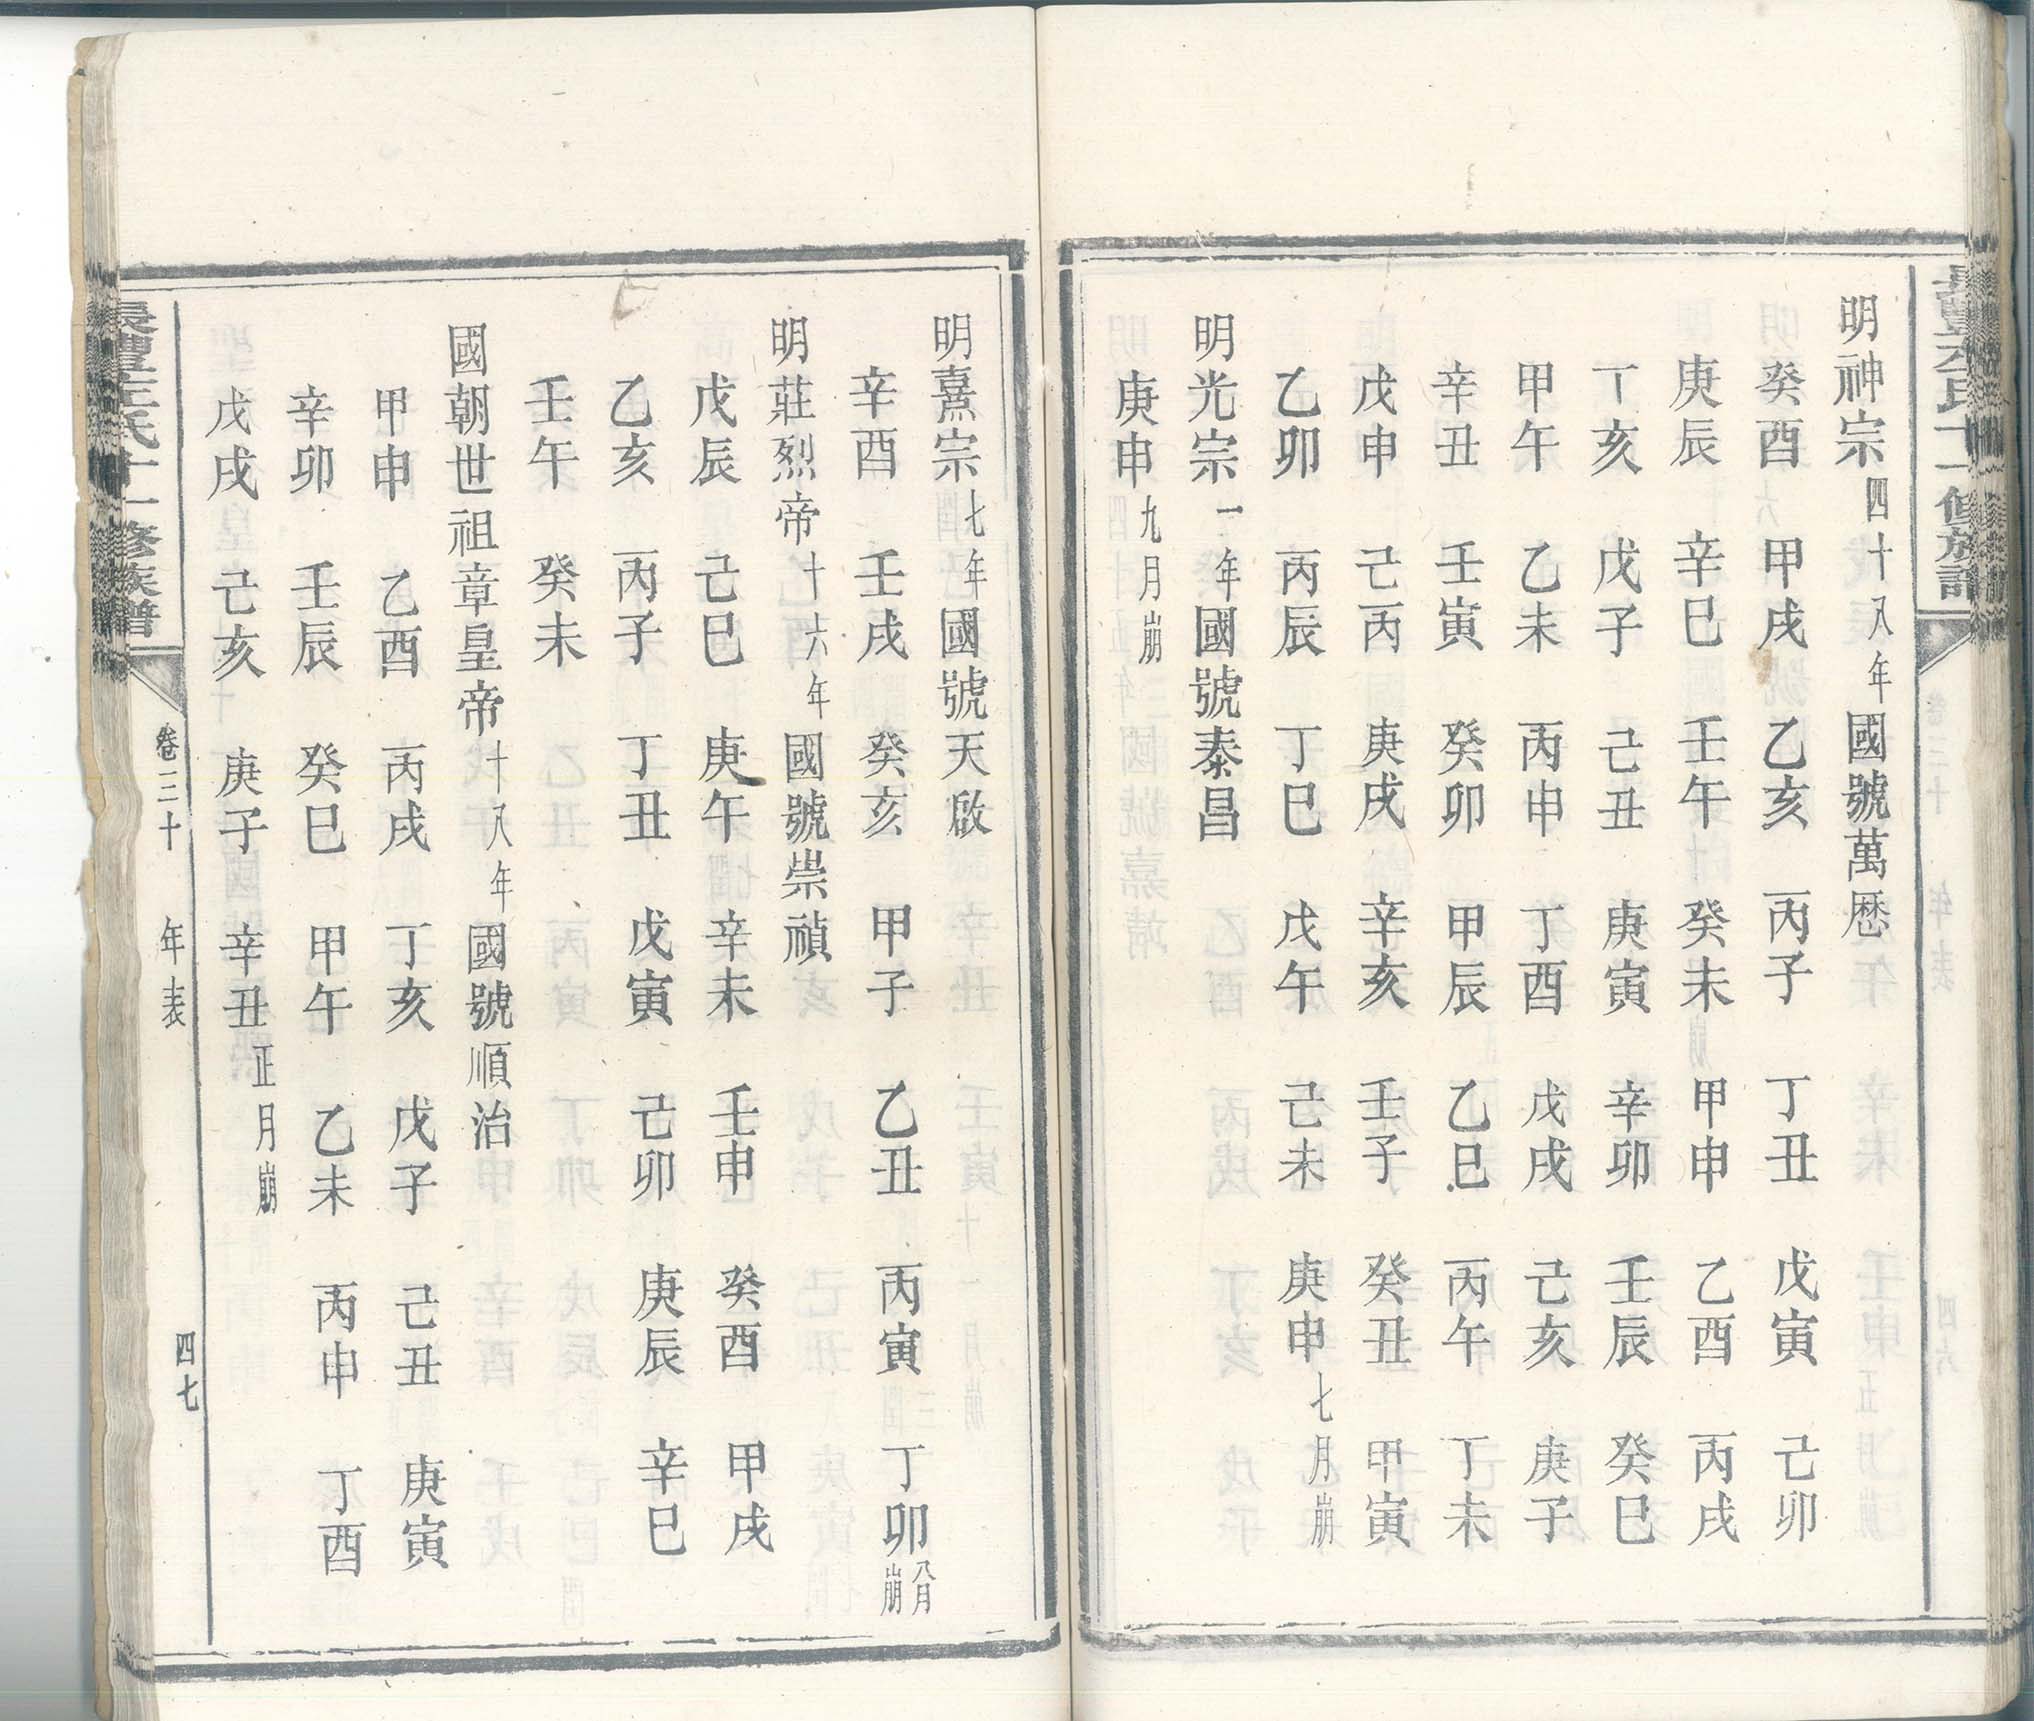 明神宗四十八年國號萬厯
癸酉 甲戌 乙亥 丙子 丁丑 戊寅 己卯
庚辰 辛巳 壬午 癸未 甲申 乙酉 丙戌
丁亥 戊子 己丑 庚寅 辛卯 壬辰 癸巳
甲午 乙未 丙申 丁酉 戊戌 己亥 庚子
辛丑 壬寅 癸卯 甲辰 乙巳 丙午 丁未
戊申 己丙 庚戌 辛亥 壬子 癸丑 甲寅
乙卯 丙辰 丁巳 戊午 己未 庚申七月崩
明光宗一年國號泰昌
庚申九月崩
明熹宗七年國號天啟
辛酉 壬戌 癸亥 甲子 乙丑 丙寅 丁卯八月崩
明莊烈帝十六年國號崇禎
戊辰 己巳 庚午 辛未 壬申 癸酉 甲戌
乙亥 丙子 丁丑 戊寅 己卯 庚辰 辛巳
壬午 癸未
國朝世祖章皇帝十八年國號順治
甲申 乙酉 丙戌 丁亥 戊子 己丑 庚寅
辛卯 壬辰 癸巳 甲午 乙未 丙申 丁酉
戊戌 己亥 庚子 辛丑正月崩
氏十一修族譜 卷三十 年表 四七